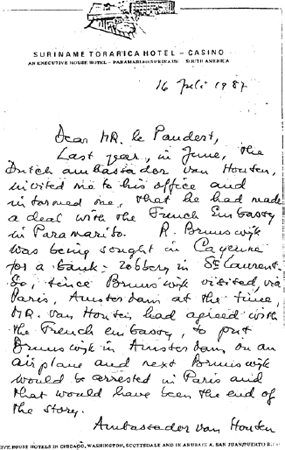 SURINAME TORARICA HOTEL – CASINO
AN EXECUTIVE HOUSE HOTEL – PARAMARIBO SURINAME SOUTH AMERICA
16 Juli 1987
Dear MR. le Pandert,
Last year, in June, the
Dutch ambassador van Houten,
invited me to his office and
informed me, that he had made
a deal with the French Embassy
in Paramaribo. R. Brunswijk
was being sought in Cayenne
for a bank-robbery in St Laurent.
So, since Brunswijk visited, via
Paris, Amsterdam at the time,
MR. van Houten had agreed with
the French embassy, to put
Brunswijk in Amsterdam, on an
airplane and next Brunswijk
would be arrested in Paris and
that would have been the end of
the story.
Ambassador van Houten
IVE HOUSE HOTELS IN CHICAGO, WASHINGTON, SCOTTSDALE AND IN ARUBA N.A. SAN JUAN/PUERTO